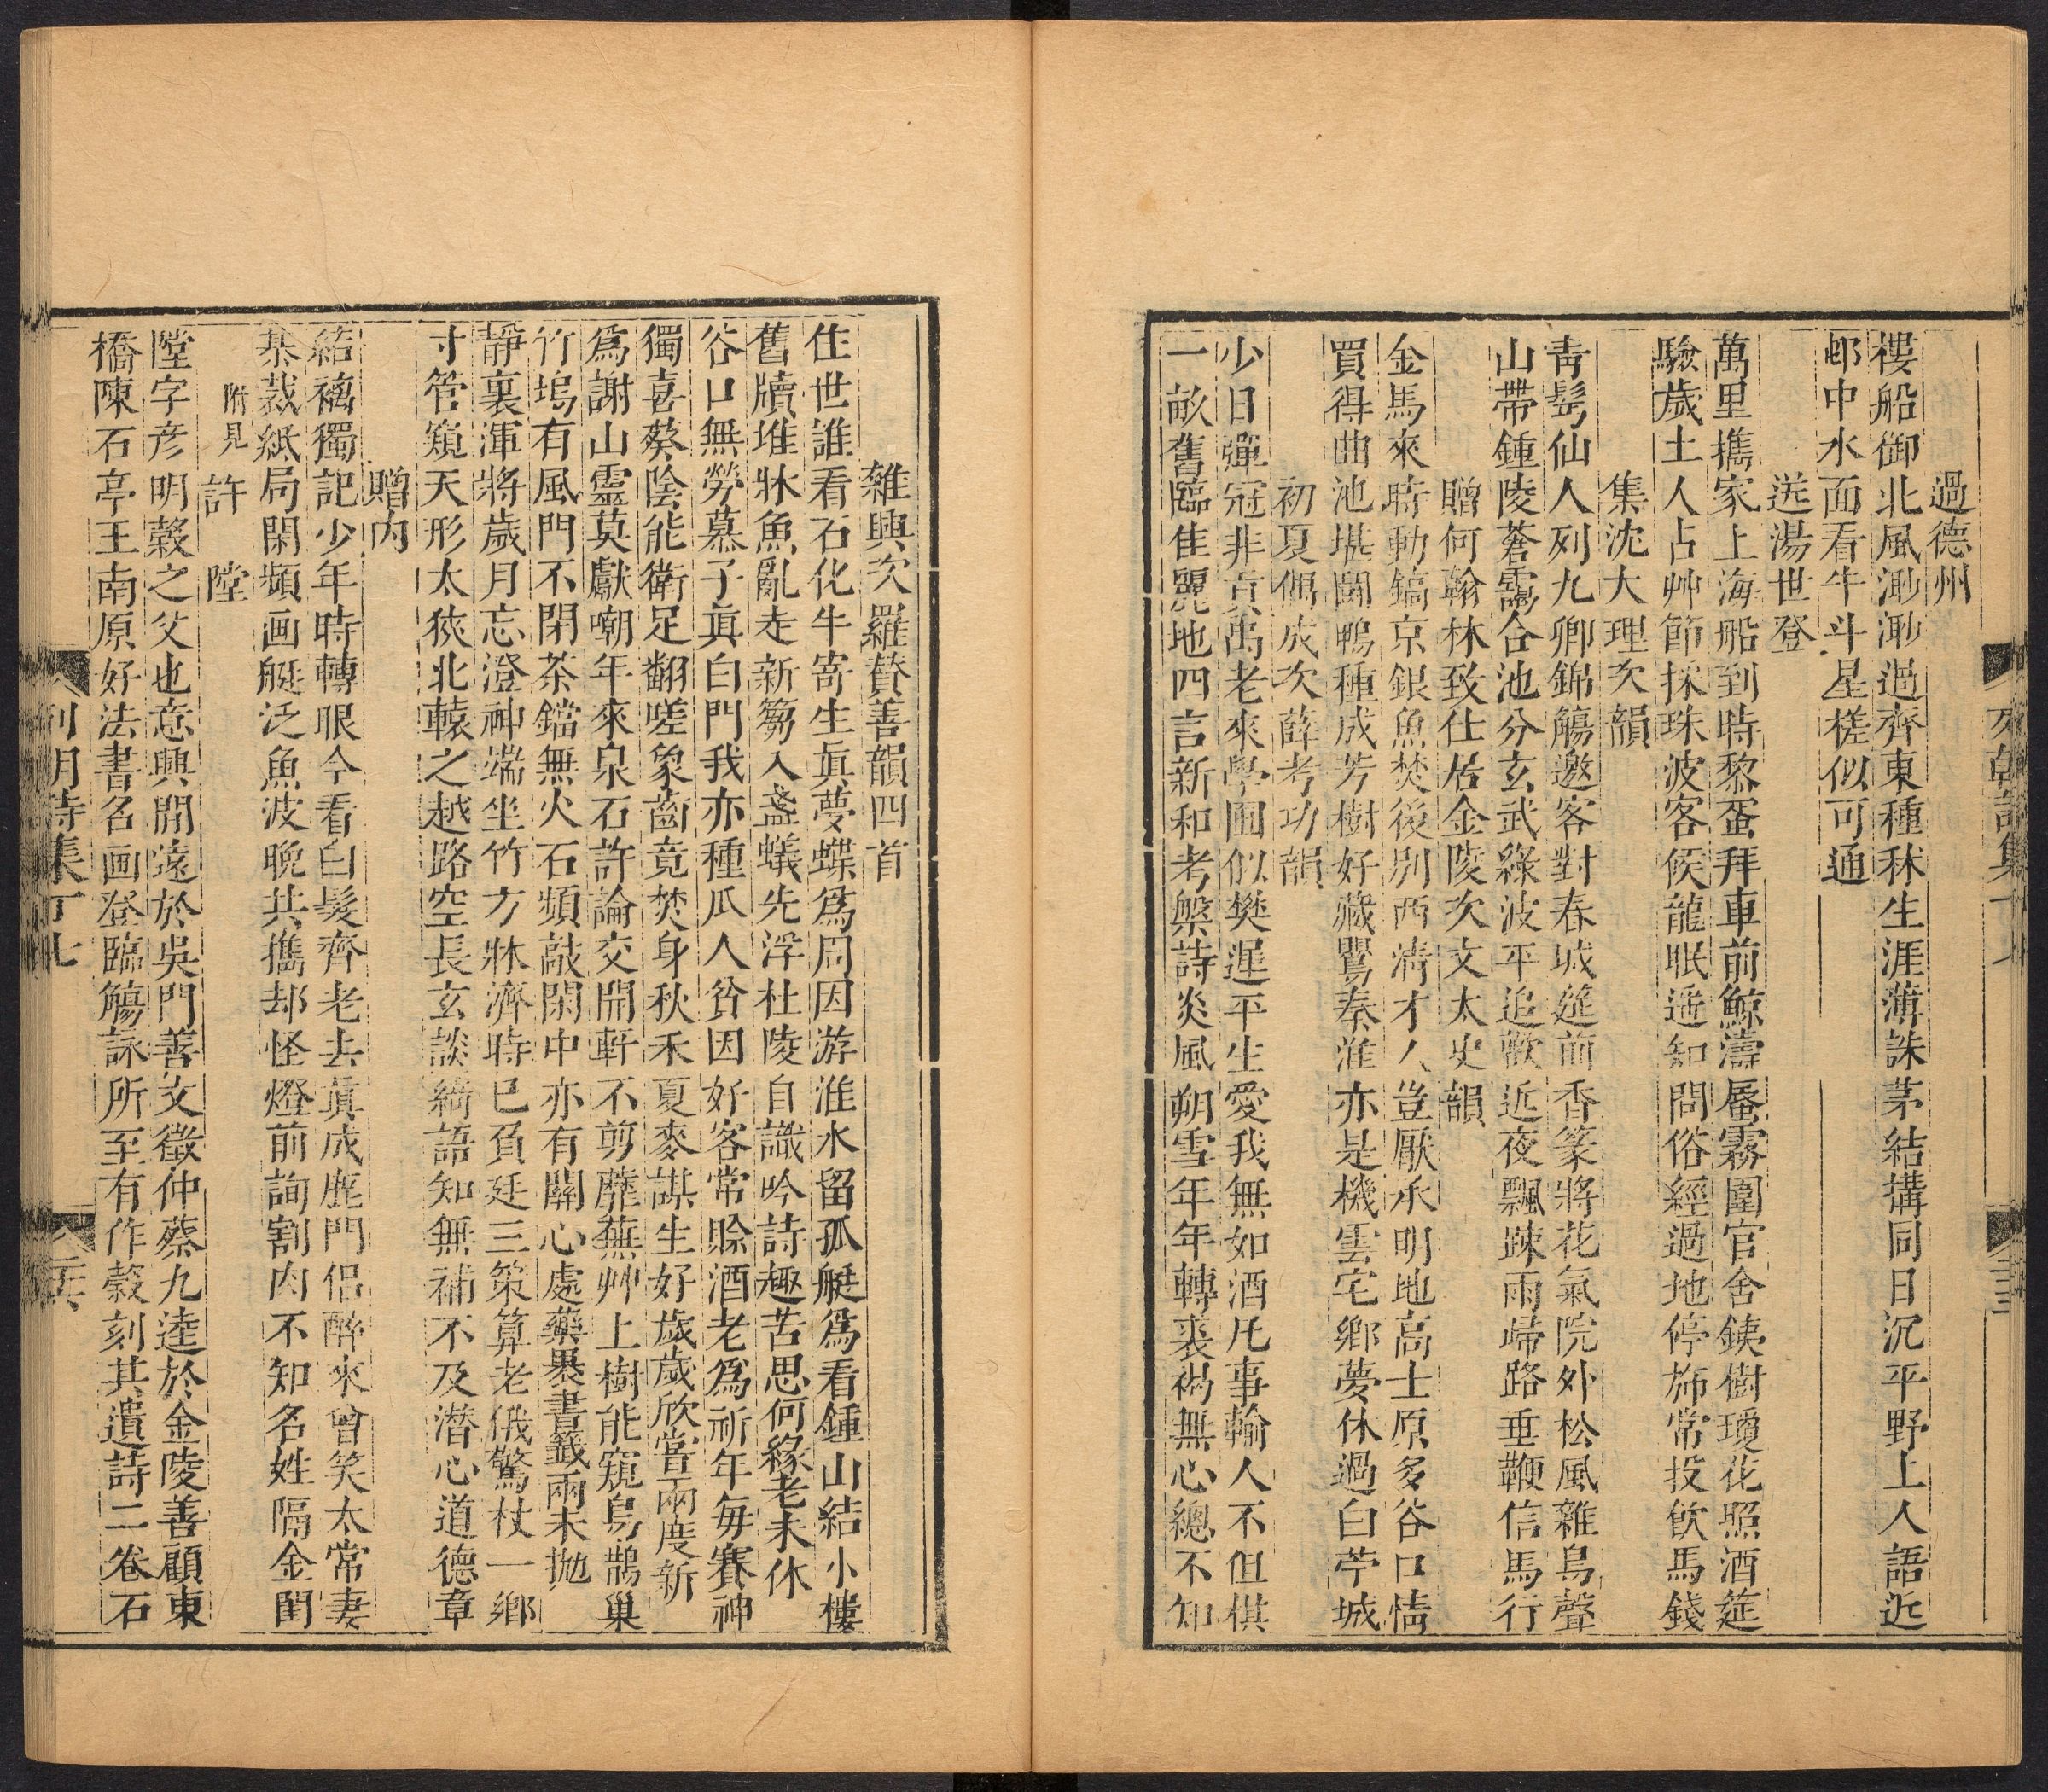 過德州
樓船御北風渺渺過齊東種秫生涯薄誅茅結搆同日沉平野上人語近
邨中水面看牛斗星槎似可通
送湯世登
萬里攜家上海船到時黎蛋拜車前鯨濤蜃霧圍官舍銕樹瓊花照酒筵
驗歲土人占艸節採珠波客候龍眠遥知問俗經過地停斾常投飲馬錢
集沈大理次韻
青髩仙人列九卿錦觴邀客對春城筵前香篆將花氣院外松風雜鳥聲
山帶鍾陵蒼靄合池分玄武綠波平追歡近夜飄踈雨歸路垂鞭信馬行
贈何翰林致仕居金陵次文太史韻
金馬來時動鎬京銀魚焚後別西淸才人豈厭承明地高士原多谷口情
買得曲池堪鬬鴨種成芳樹好藏鸎秦淮亦是機雲宅鄉夢休過白苧城
初夏偶成次薛考功韻
少日彈冠非貢禹老來學圃似樊遲平生愛我無如酒凡事輸人不但棋
一畝舊臨佳麗地四言新和考槃詩炎風朔雪年年轉裘褐無心總不知
雜興次羅贊善韻四首
住世誰看石化牛寄生眞夢蝶爲周因游淮水留孤艇爲看鍾山結小樓
舊牘堆牀魚亂走新篘入盞蟻先浮杜陵自識吟詩趣苦思何緣老未休
谷口無勞慕子眞白門我亦種瓜人貧因好客常賒酒老爲祈年每賽神
獨喜葵陰能衛足翻嗟象齒竟焚身秋禾夏麥謀生好歲歲欣嘗兩度新
爲謝山靈莫獻嘲年來泉石許論交開軒不剪蘼蕪艸上樹能窺烏鵲巢
竹塢有風門不閉茶鐺無火石頻敲閑中亦有關心處藥裹書籤兩未拋
靜裏渾將歲月忘澄神端坐竹方牀濟時已負廷三策算老俄驚杖一鄉
寸管窺天形太狹北轅之越路空長玄談綺語知無補不及潛心道德章
贈内
結褵獨記少年時轉眼今看白髮齊老去眞成鹿門侶醉來曾笑太常妻
棊裁紙局閑頻画艇泛魚波晚共攜却怪燈前詢割肉不知名姓隔金閨
附見 許 陞
陞字彦明穀之父也意興閒遠於吳門善文徵仲蔡九逵於金陵善顧東
橋陳石亭王南原好法書名画登臨觴詠所至有作穀刻其遺詩二卷石
列朝詩集丁七